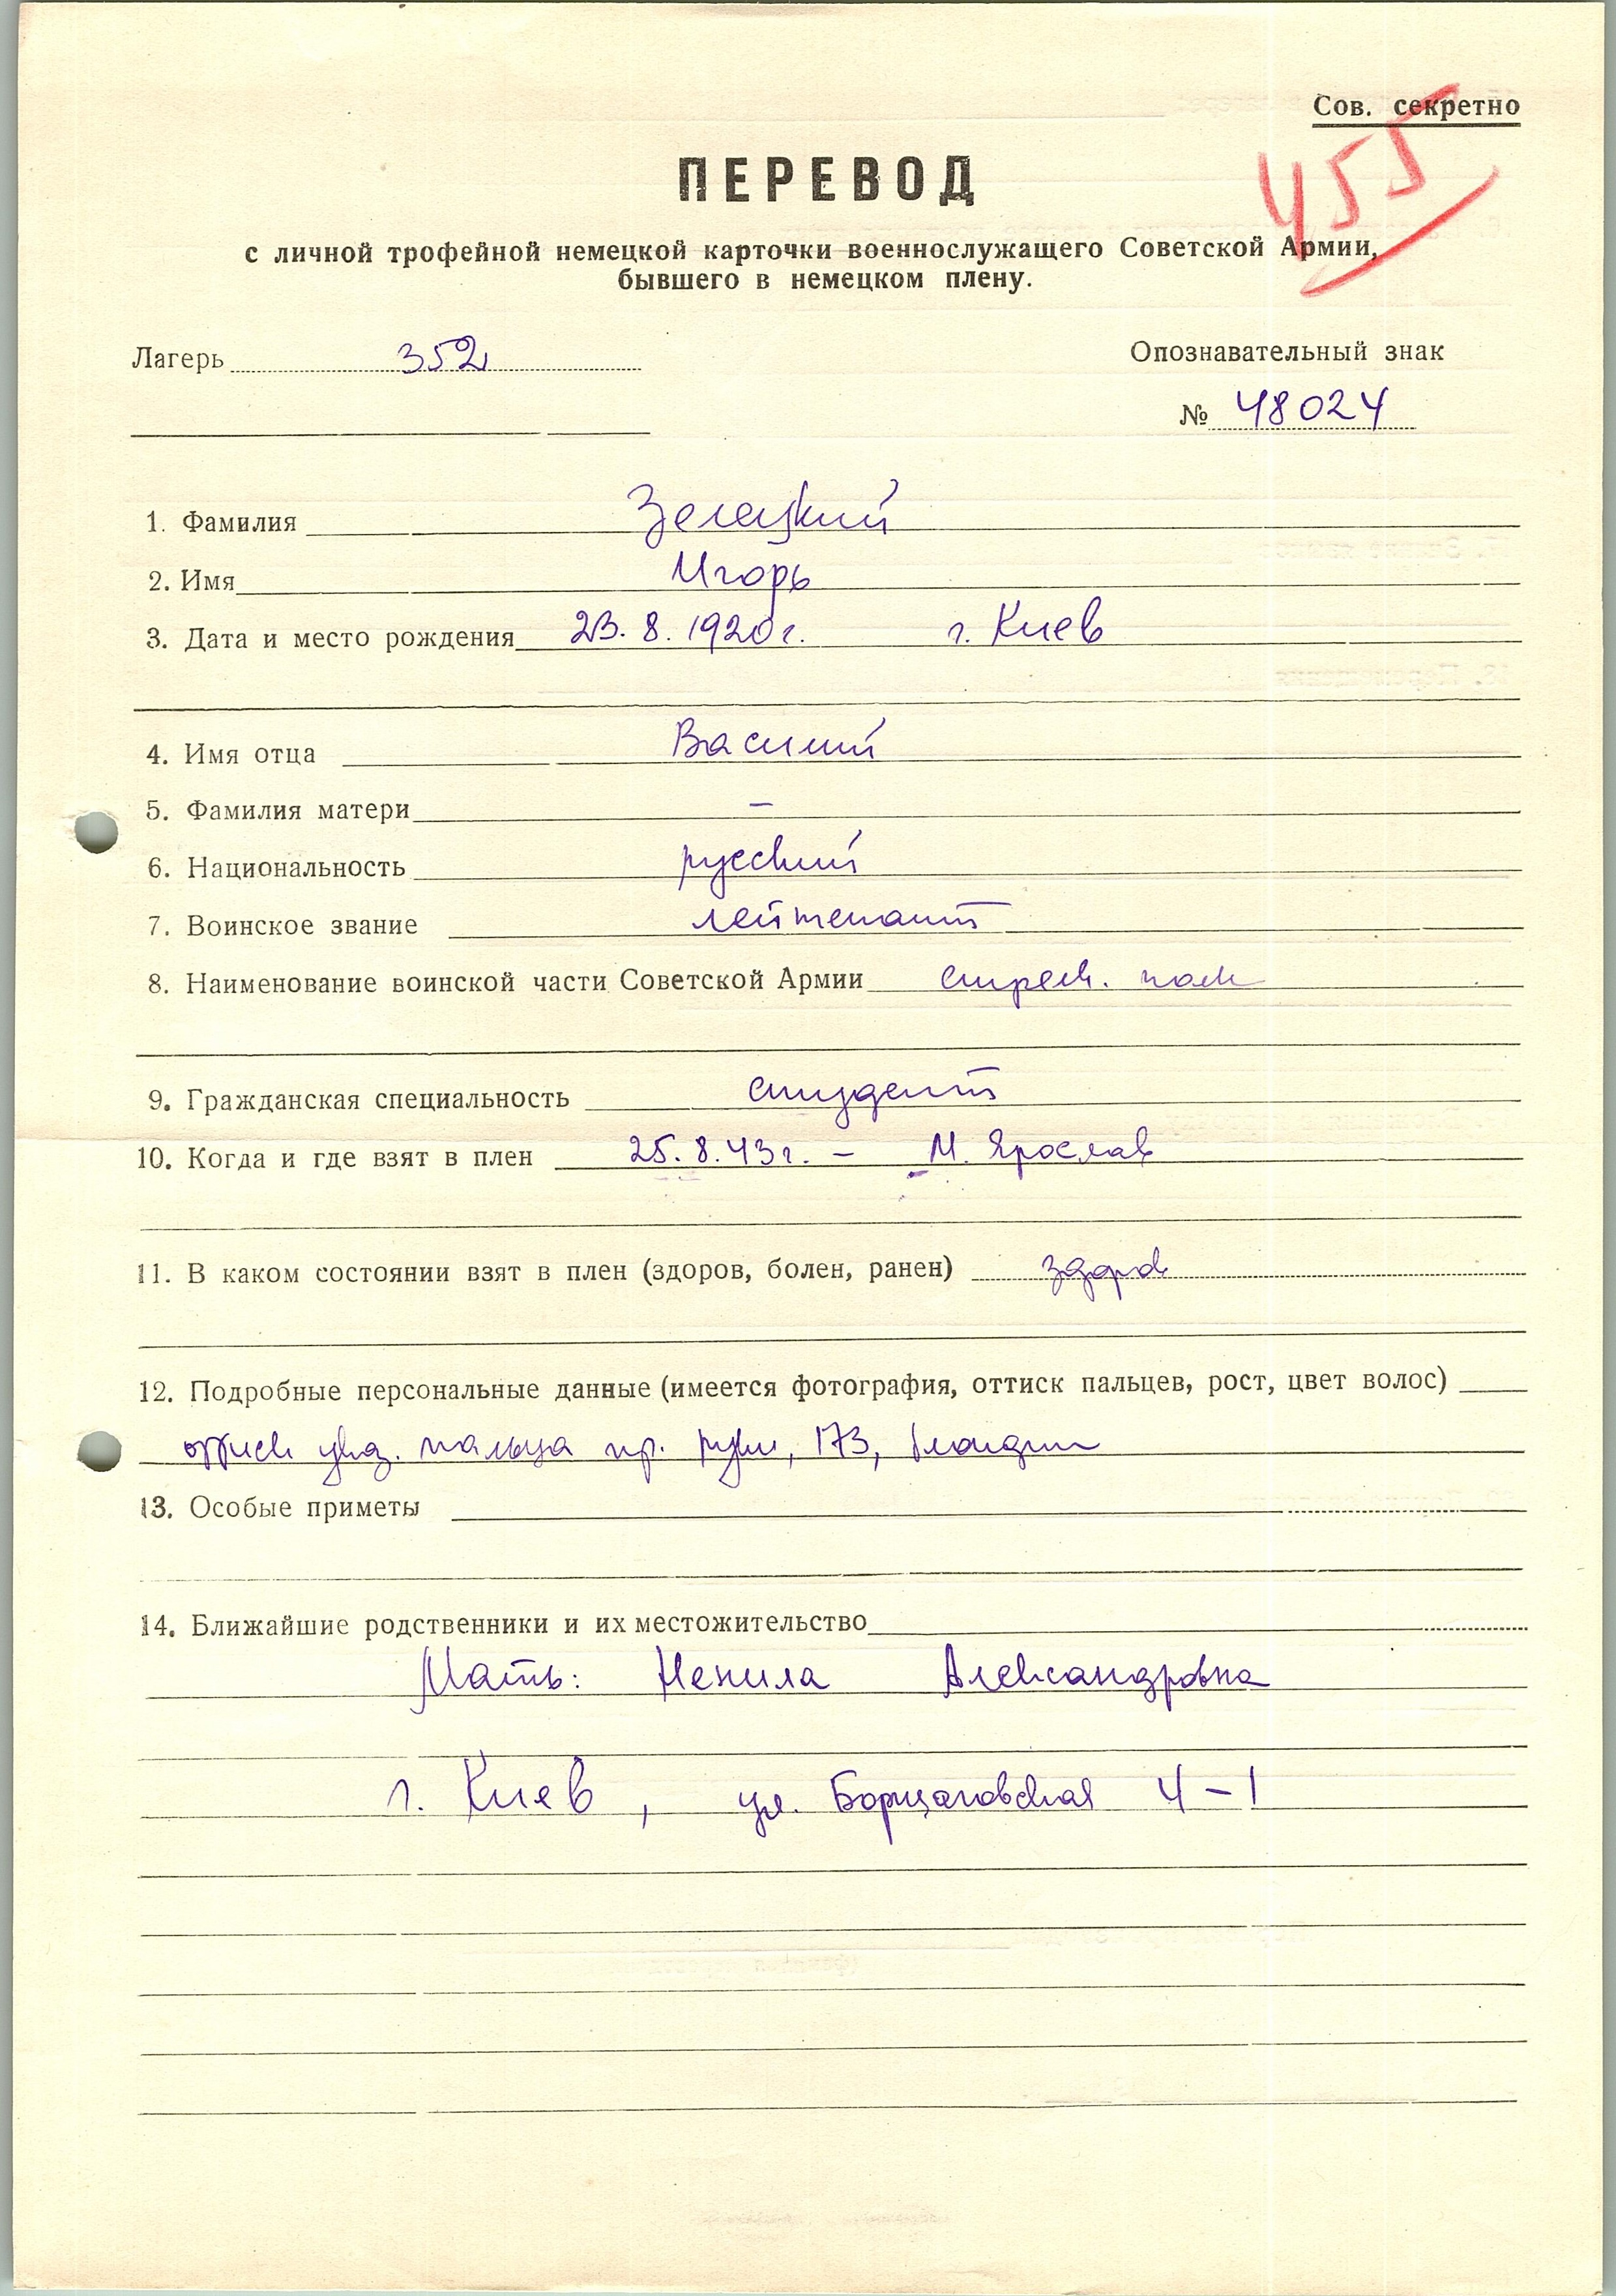 Сов. секретно
455
ПЕРЕВОД
с личной трофейной немецкой карточки военнослужащего Советской Армии,
бывшего в немецком плену.
Лагерь 352
Опознавательный знак
№ 48024
1. Фамилия Зелецкий
2. Имя Игорь
3. Дата и место рождения 23.8.1920г. г. Киев
4. Имя отца Василий
5. Фамилия матери –
6. Национальность русский
7. Воинское звание лейтенант
8. Наименование воинской части Советской Армии стрелк. полк
9. Гражданская специальность студент
10. Когда и где взят в плен 25.8.43г. – М. Ярослав
11. В каком состоянии взят в плен (здоров, болен, ранен) здоров
12. Подробные персональные данные (имеется фотография, оттиск пальцев, рост, цвет волос)
оттиск указ. пальца пр. руки, 173, блондин
13. Особые приметы
14. Ближайшие родственники и их местожительство
Мать: Ненила Александровна
г. Киев, ул. Борщаговская 4-1